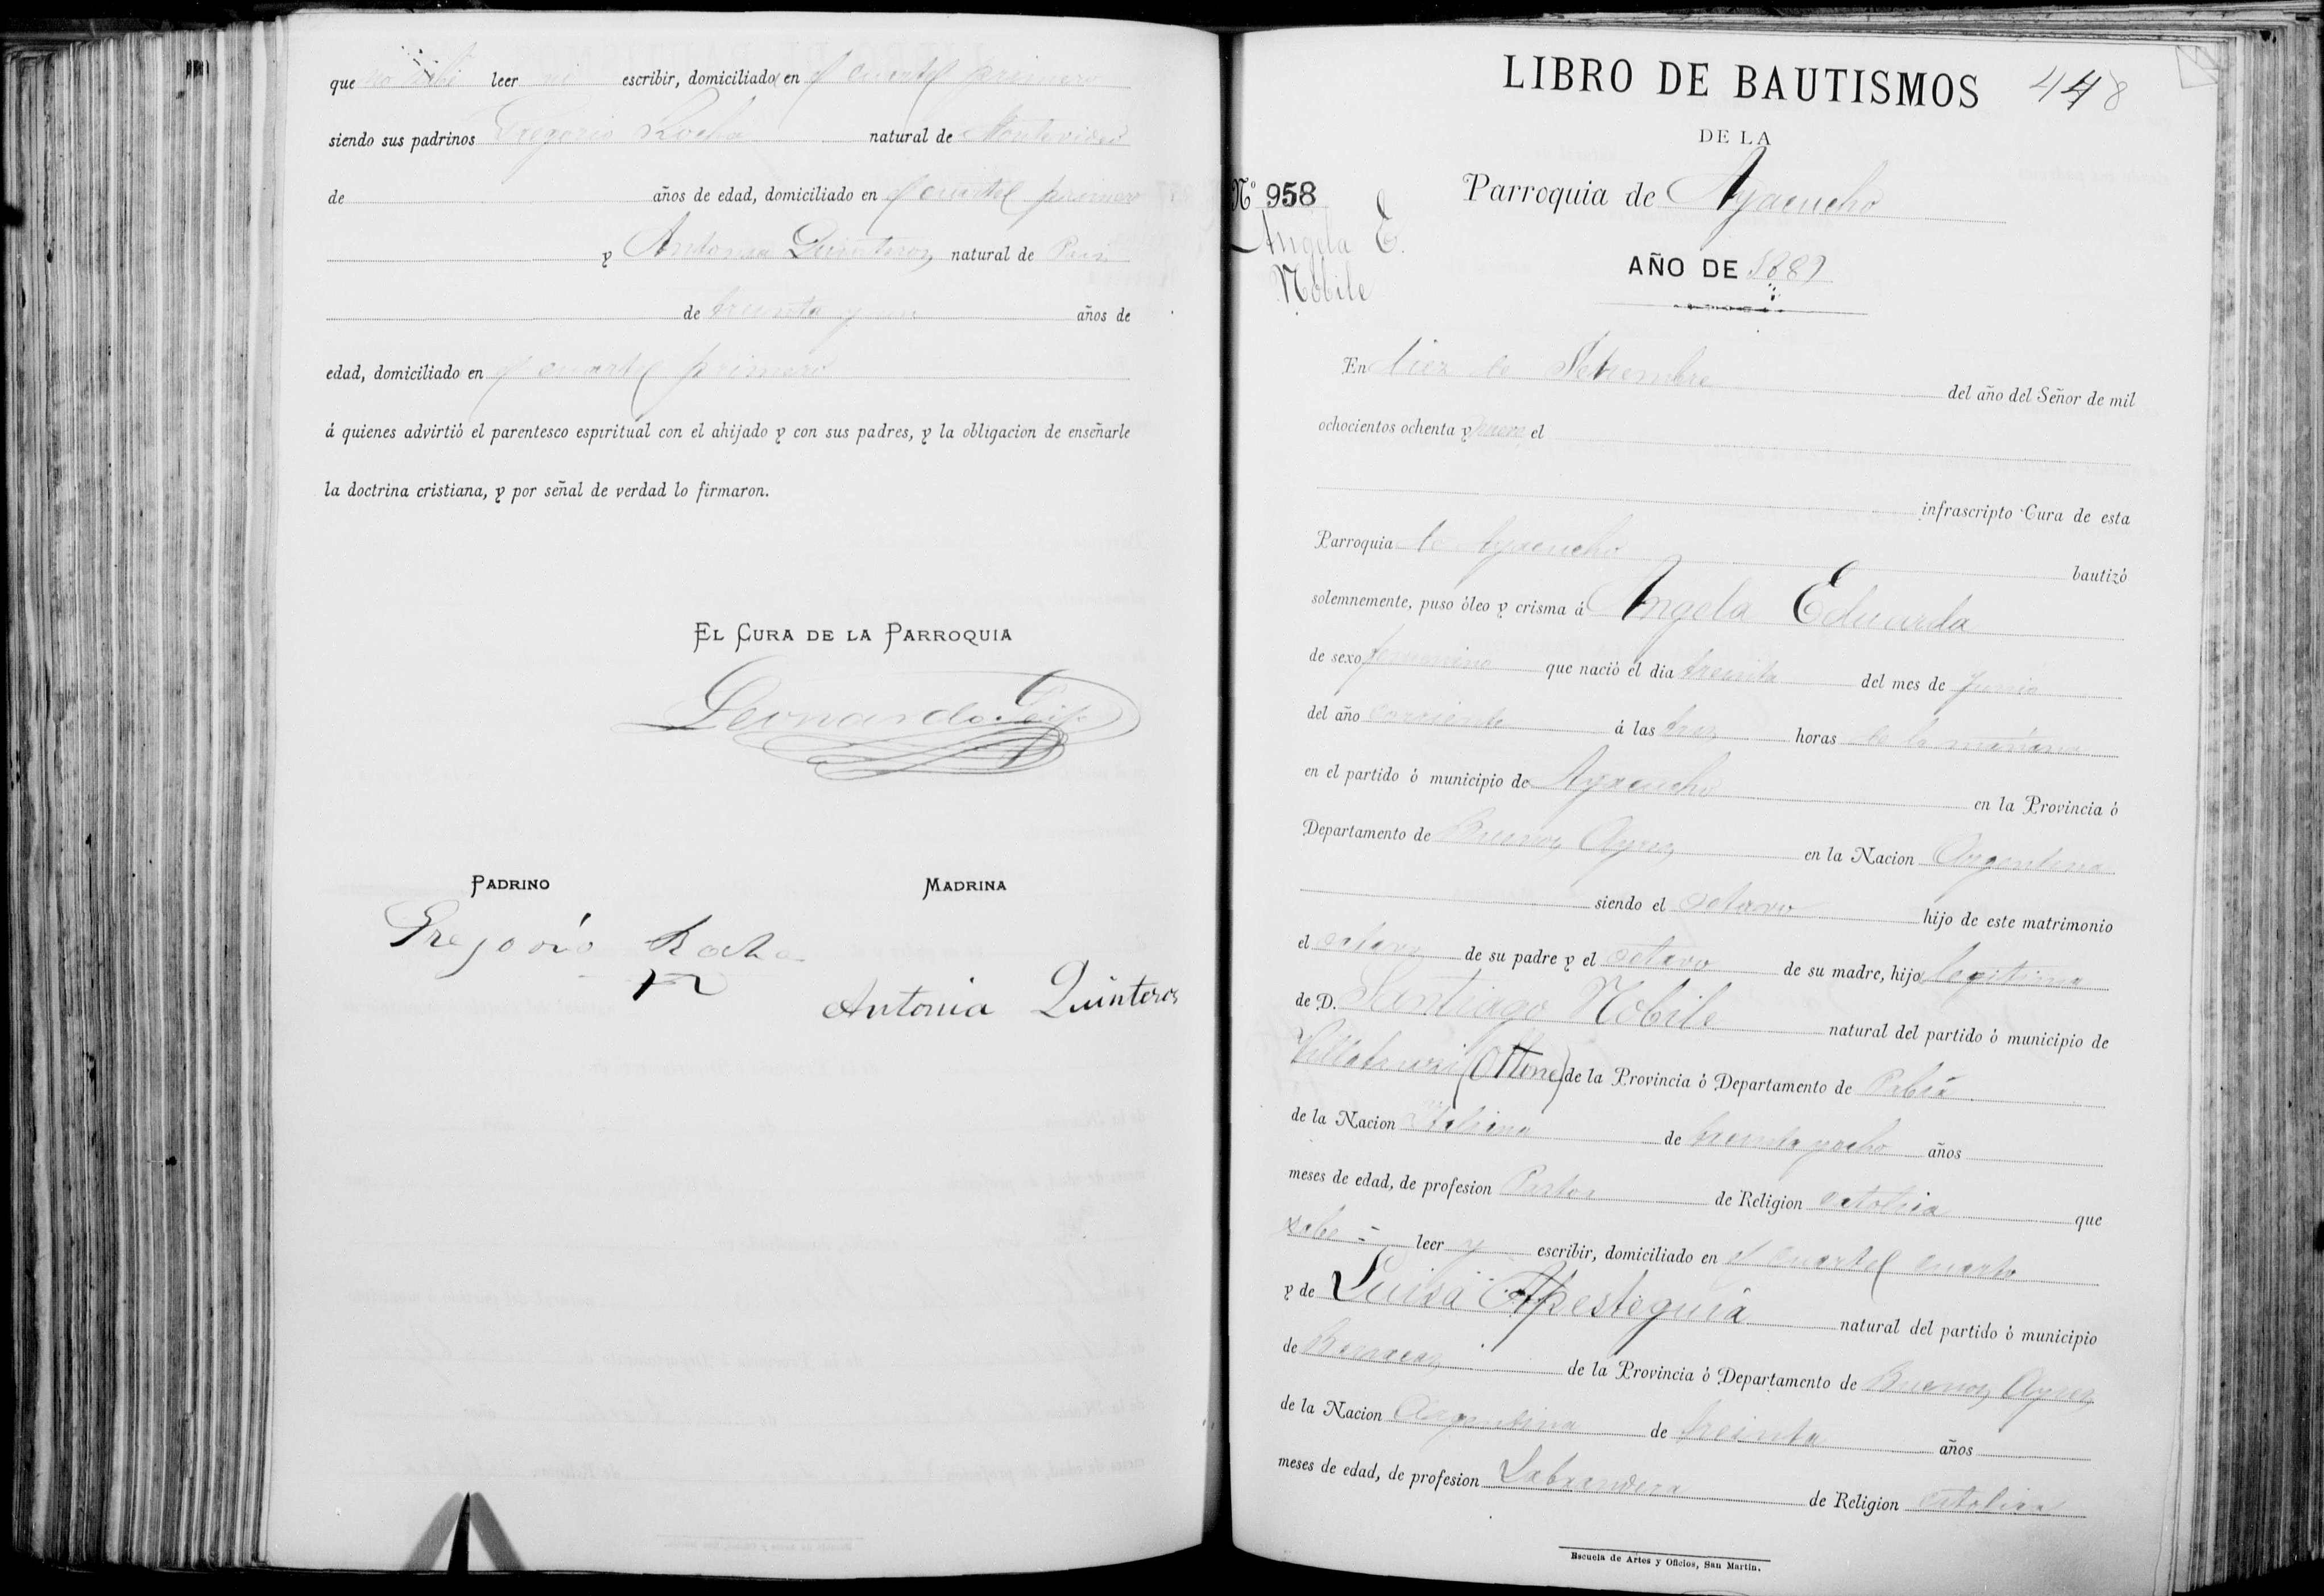 que no sabe leer ni escribir, domiciliado en el cuartel primero
siendo sus padrinos Gregorio Rocha natural de Montevideo
de años de edad, domiciliado en el cuartel primero
y Antonia Quinteros natural de Pais
de treinta y un años de
edad, domiciliado en el cuartel primero
á quienes advirtió el parentesco espiritual con el ahijado y con sus padres, y la obligacion de enseñarle
la doctrina cristiana, y por señal de verdad lo firmaron.
EL CURA DE LA PARROQUIA
Leonardo
PADRINO MADRINA
Gregorio Rocha
Antonia Quinteros
LIBRO DE BAUTISMOS 448
DE LA
Nº 958 Parroquia de Ayacucho
Angela E.
Nobile
AÑO DE 1889
En diez de Setiembre del año del Señor de mil
ochocientos ochenta y nueve el
infrascripto Cura de esta
Parroquia de Ayacucho bautizó
solemnemente, puso óleo y crisma á Angela Eduarda
de sexo femenino que nació el dia treinta del mes de Junio
del año corriente á las tres horas de la mañana
en el partido ó municipio de Ayacucho en la Provincia ó
Departamento de Buenos Ayres en la Nacion Argentina
siendo el octavo hijo de este matrimonio
el octavo de su padre y el octavo de su madre, hijo legitima
de D. Santiago Nobile natural del partido ó municipio de
(Ottone) de la Provincia ó Departamento de Pabia
de la Nacion Italiana de treinta y ocho años
meses de edad, de profesion Pastor de Religion catolica que
sabe - leer y escribir, domiciliado en el cuartel cuarto
y de Luisa Apesteguia natural del partido ó municipio
de de la Provincia ó Departamento de Buenos Ayres
de la Nacion Argentina de treinta años
meses de edad, de profesion Labrandera de Religion catolica
Escuela de Artes y Oficios, San Martin.